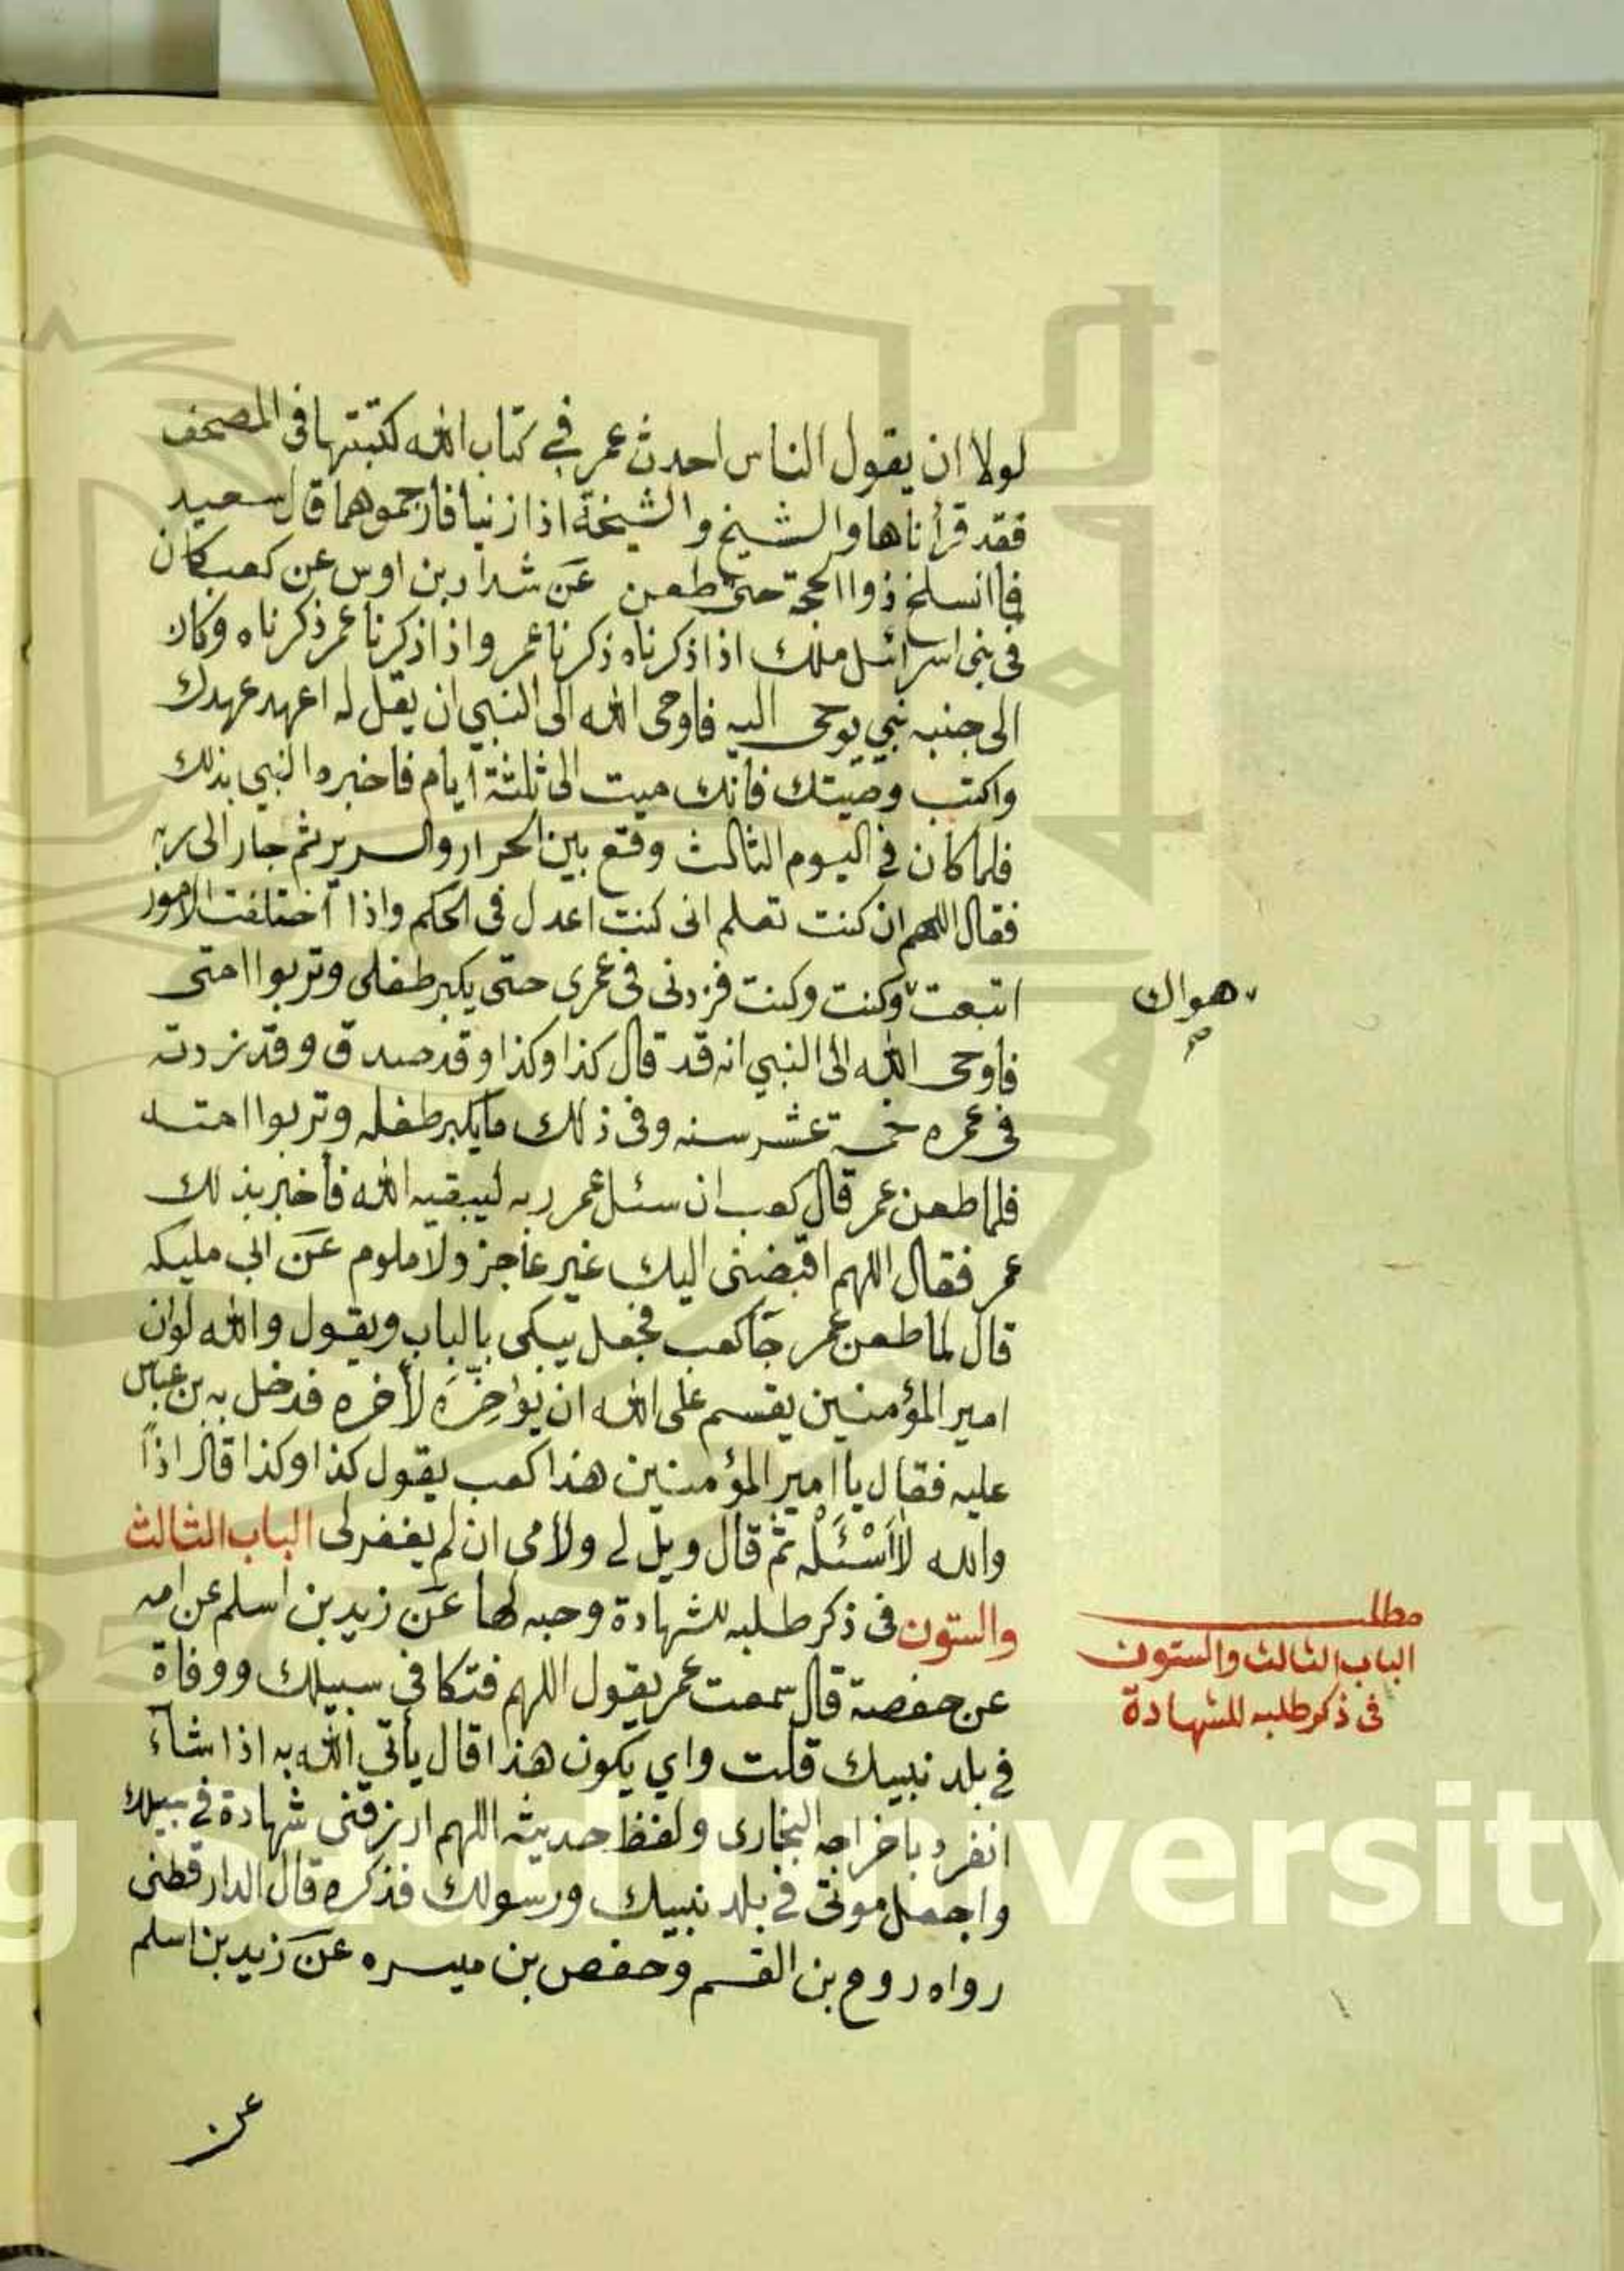 لولا ان يقول الناس احدث عمر في كتاب الله لكتبتها في المصحف
فقد قرأناها والشيخ والشيخة اذا زنيا فارجموهما قال سعيد
فما انسلخ ذوا الحجة حتى طعن عن شداد بن اوس عن كعب كان
في بنى اسرائيل ملك اذا ذكرناه ذكرنا عمر واذا ذكرنا عمر ذكرناه وكان
الى جنبه نبي يوحى اليه فاوحى الله الى النبي ان يقل له اعهد عهدك
واكتب وصيتك فانك ميت الى ثلثة ايام فاخبره النبي بذلك
فلما كان في اليوم الثالث وقع بين الحرار والسرير ثم جار الى ربه
فقال اللهم ان كنت تعلم انى كنت اعدل في الحكم واذا اختلفت الامور
اتبعت وكنت وكنت فزدنى في عمرى حتى يكبر طفلى وتربوا امتى
هواك
صح
فاوحى الله الى النبي انه قد قال كذا وكذا وقد صدق وقد زدته
في عمره خمسة عشر سنه وفى ذلك ما يكبر طفله وتربوا امته
فلما طعن عمر قال كعب ان سئل عمر ربه ليبقيه الله فأخبر بذلك
عمر فقال اللهم اقبضنى اليك غير عاجز ولا ملوم عن ابي مليكه
قال لما طعن عمر جآ كعب فجعل يبكى بالباب ويقول والله لوان
امير المؤمنين يقسم على الله ان يؤخره لأخره فدخل به بن عباس
عليه فقال يا امير المؤمنين هذا كعب يقول كذا وكذا قال اذاً
والله لا أسئله ثم قال ويل لي ولامى ان لم يغفر لى الباب الثالث
والستون في ذكر طلبه للشهادة وحبه لها عن زيد بن اسلم عن امه
مطلب
الباب الثالث والستون
في ذكر طلبه للشهادة
عن حفصة قال سمعت عمر يقول اللهم قتكا في سبيلك ووفاة
في بلد نبيك قلت واي يكون هذا قال يأتي الله به اذا شآء
انفرد باخراجه البخارى ولفظ حديثه اللهم ارزقنى شهادة في سبيلك
واجعل موتى في بلد نبيك ورسولك فذكره قال الدارقطنى
رواه روح بن القسم وحفص بن ميسره عن زيد بن اسلم
عن
versity